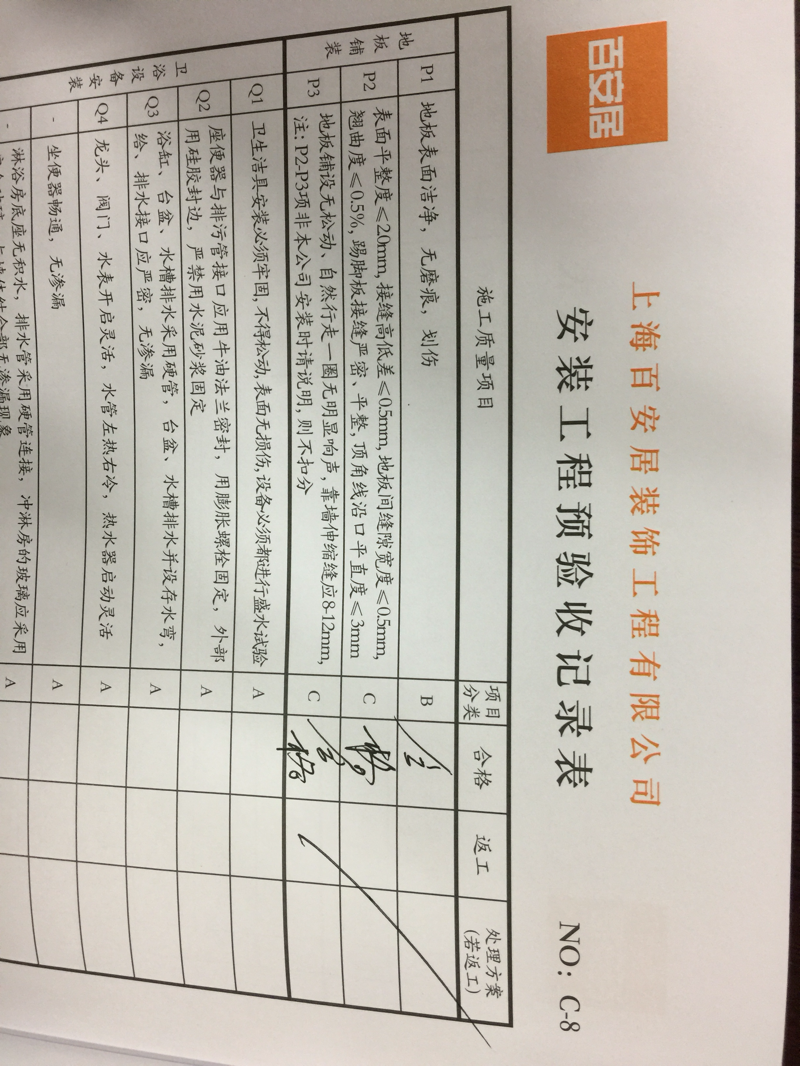 百安居
上海百安居装饰工程有限公司
安装工程预验收记录表 NO: C-8
施工质量项目 项目分类 合格 返工 处理方案(若返工)
地板铺装
P1 地板表面洁净，无磨痕，划伤 B
P2 表面平整度≤20mm, 接缝高低差≤0.5mm, 地板间缝隙宽度≤0.5mm,
翘曲度≤0.5%, 踢脚板接缝严密、平整, 顶角线沿口平直度≤3mm C
P3 地板铺设无松动、自然行走一圈无明显响声, 靠墙伸缩缝应8-12mm,
注: P2-P3项非本公司安装时请说明, 则不扣分 C
卫浴设备安装
Q1 卫生洁具安装必须牢固, 不得松动, 表面无损伤, 设备必须都进行盛水试验 A
Q2 座便器与排污管接口应用牛油法兰密封, 用膨胀螺栓固定, 外部
用硅胶封边, 严禁用水泥砂浆固定 A
Q3 浴缸、台盆、水槽排水采用硬管, 台盆、水槽排水并设存水弯,
给、排水接口应严密, 无渗漏 A
Q4 龙头、阀门、水表开启灵活, 水管左热右冷, 热水器启动灵活 A
- 坐便器畅通, 无渗漏 A
- 淋浴房底座无积水, 排水管采用硬管连接, 冲淋房的玻璃应采用 A